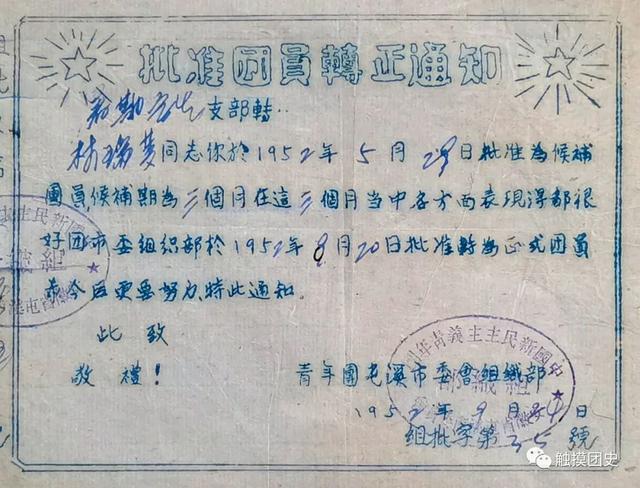 批准团員轉正通知
支部轉：
林瑞芝同志你於1952年5月29日批准為候補
團員候補期為三個月在這三個月当中各方面表現得都很
好团市委組织部於1952年8月20日批准轉為正式团員
今后更要努力特此通知。
此致
敬禮！
青年團屯溪市委會組織部
1952年9月24日
组批字第35號
中國新民主主義青年團
組織部
触摸团史